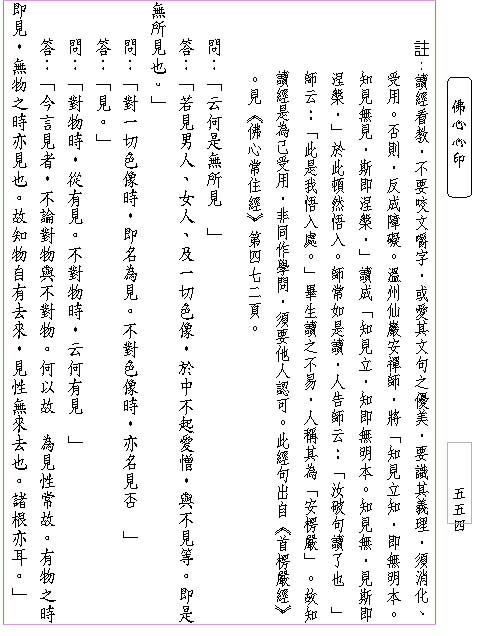 佛心心印
五五四
註：讀經看教，不要咬文嚼字，或愛其文句之優美，要識其義理，須消化、
受用。否則，反成障礙。溫州仙巖安禪師，將「知見立知，即無明本。
知見無見，斯即涅槃，」讀成「知見立，知即無明本。知見無，見斯即
涅槃，」於此頓然悟入。師常如是讀，人告師云：「汝破句讀了也　」
師云：「此是我悟入處。」畢生讀之不易，人稱其為「安楞嚴」。故知
讀經是為己受用，非同作學問，須要他人認可。此經句出自《首楞嚴經》
。見《佛心常住經》第四七二頁。
問：「云何是無所見　」
答：「若見男人、女人、及一切色像，於中不起愛憎，與不見等。即是
無所見也。」
問：「對一切色像時，即名為見。不對色像時，亦名見否　」
答：「見。」
問：「對物時，從有見。不對物時，云何有見　」
答：「今言見者，不論對物與不對物。何以故　為見性常故。有物之時
即見，無物之時亦見也。故知物自有去來，見性無來去也。諸根亦耳。」